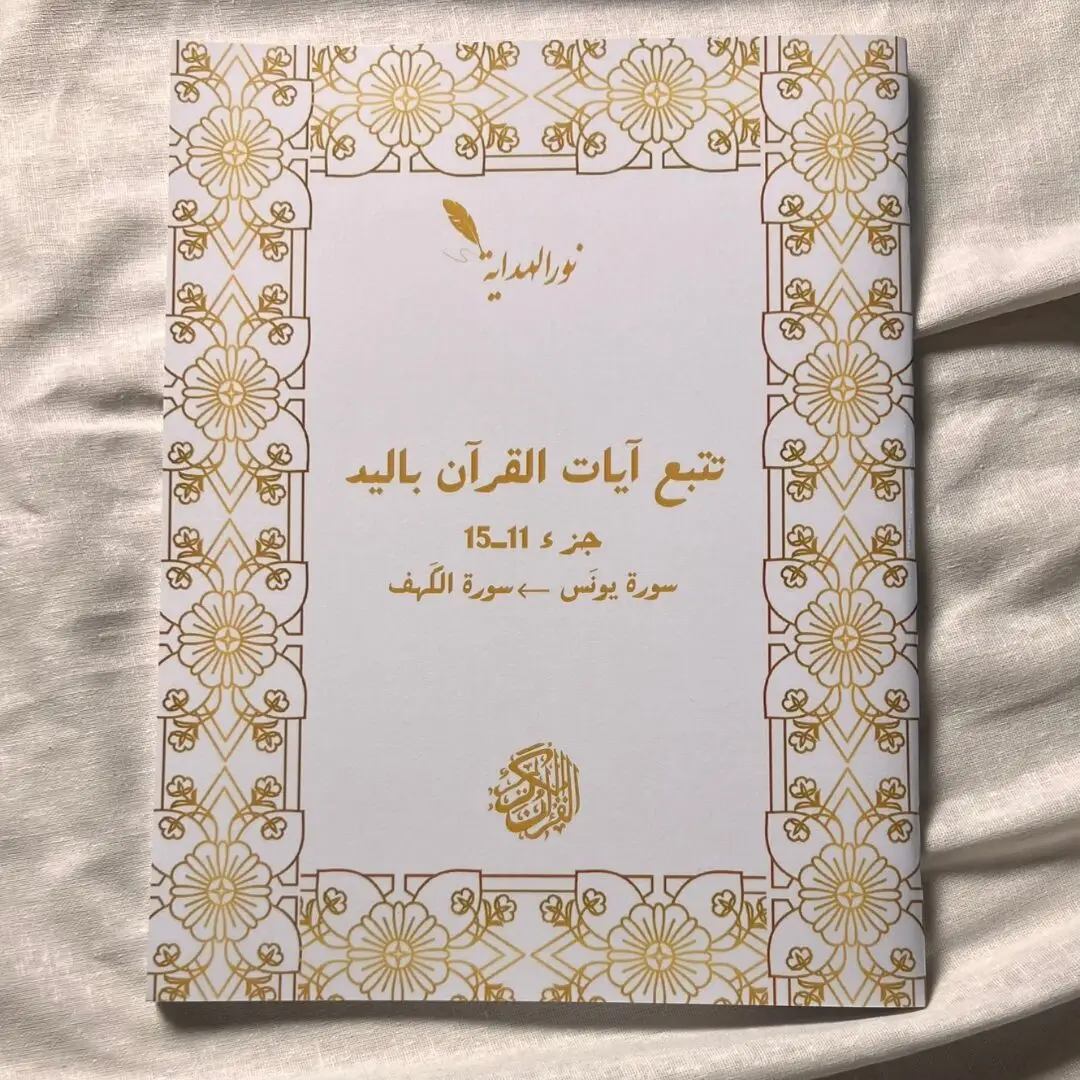 نور الهداية
تتبع آيات القرآن باليد
جزء 11_15
سورة يونَس ← سورة الكَهف
القرآن الكريم